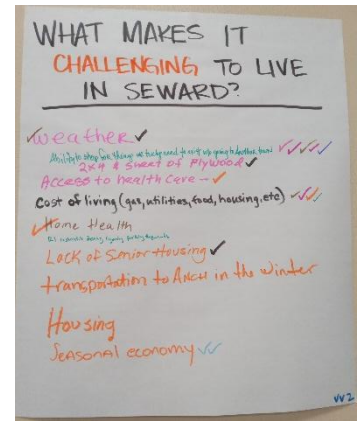 WHAT MAKES IT
CHALLENGING TO LIVE
IN SEWARD?
weather
Ability to shop for things we
2x4 & sheet of Plywood
Access to health care
Cost of living (gas, utilities, food, housing, etc)
Home Health
Lack of Senior Housing
transportation to Anch in the winter
Housing
Seasonal economy
VV2